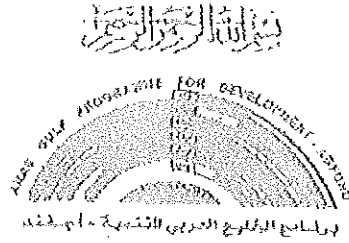 بسم الله الرحمن الرحيم
ARAB GULF PROGRAMME FOR DEVELOPMENT - AGFUND
برنامج الخليج العربي للتنمية - أجفند